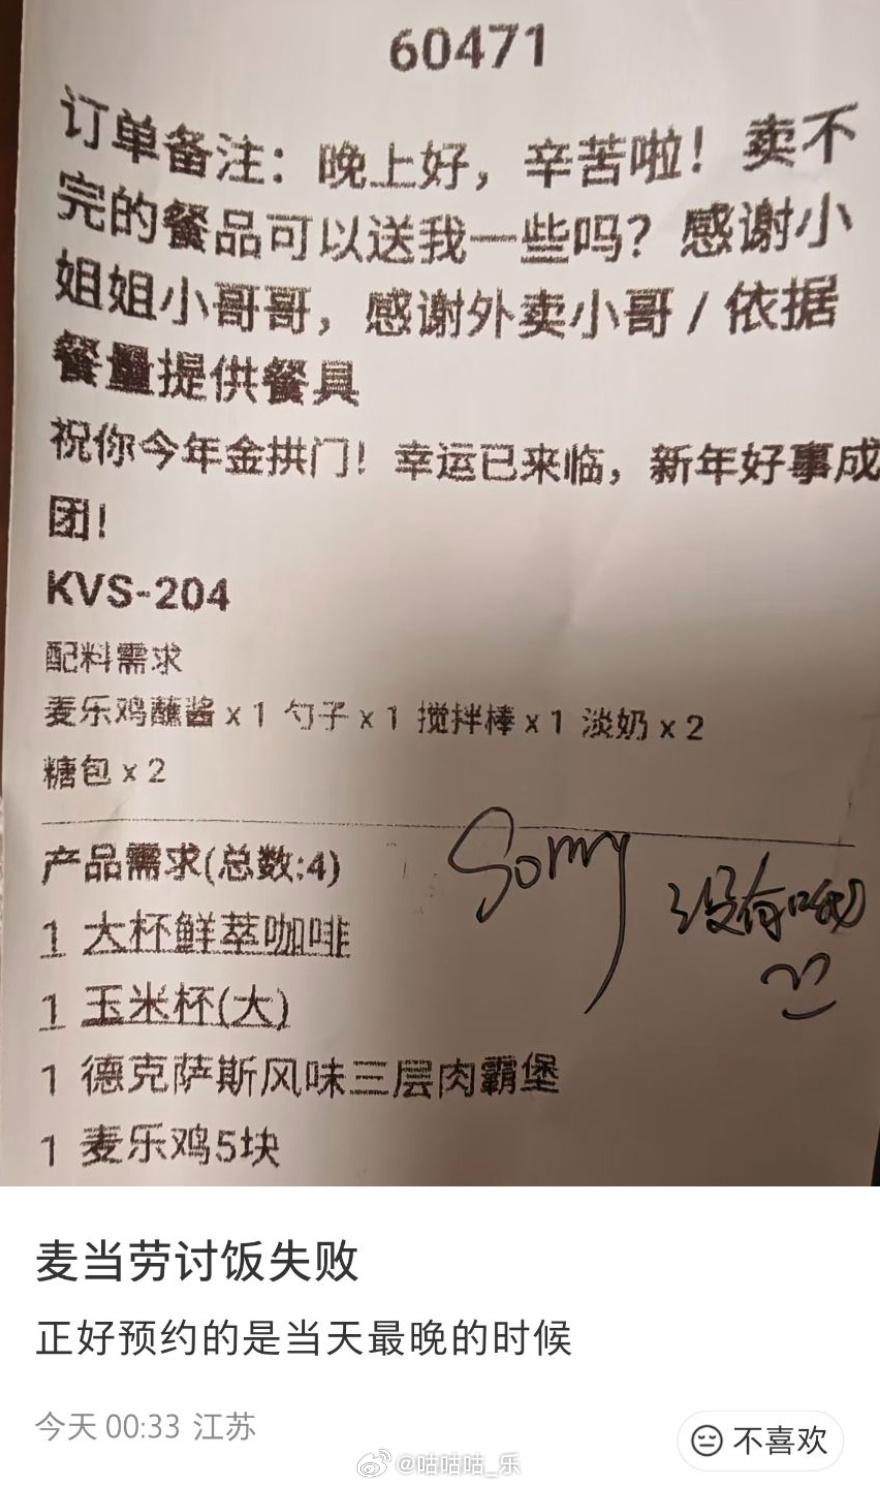 60471
订单备注：晚上好，辛苦啦！卖不
完的餐品可以送我一些吗？感谢小
姐姐小哥哥，感谢外卖小哥 / 依据
餐量提供餐具
祝你今年金拱门！幸运已来临，新年好事成
团！
KVS-204
配料需求
麦乐鸡蘸酱 x 1 勺子 x 1 搅拌棒 x 1 淡奶 x 2
糖包 x 2
产品需求(总数:4)
1 大杯鲜萃咖啡
1 玉米杯(大)
1 德克萨斯风味三层肉霸堡
1 麦乐鸡5块
Sorry
没有哦
麦当劳讨饭失败
正好预约的是当天最晚的时候
今天 00:33 江苏
不喜欢
@咕咕咕_乐